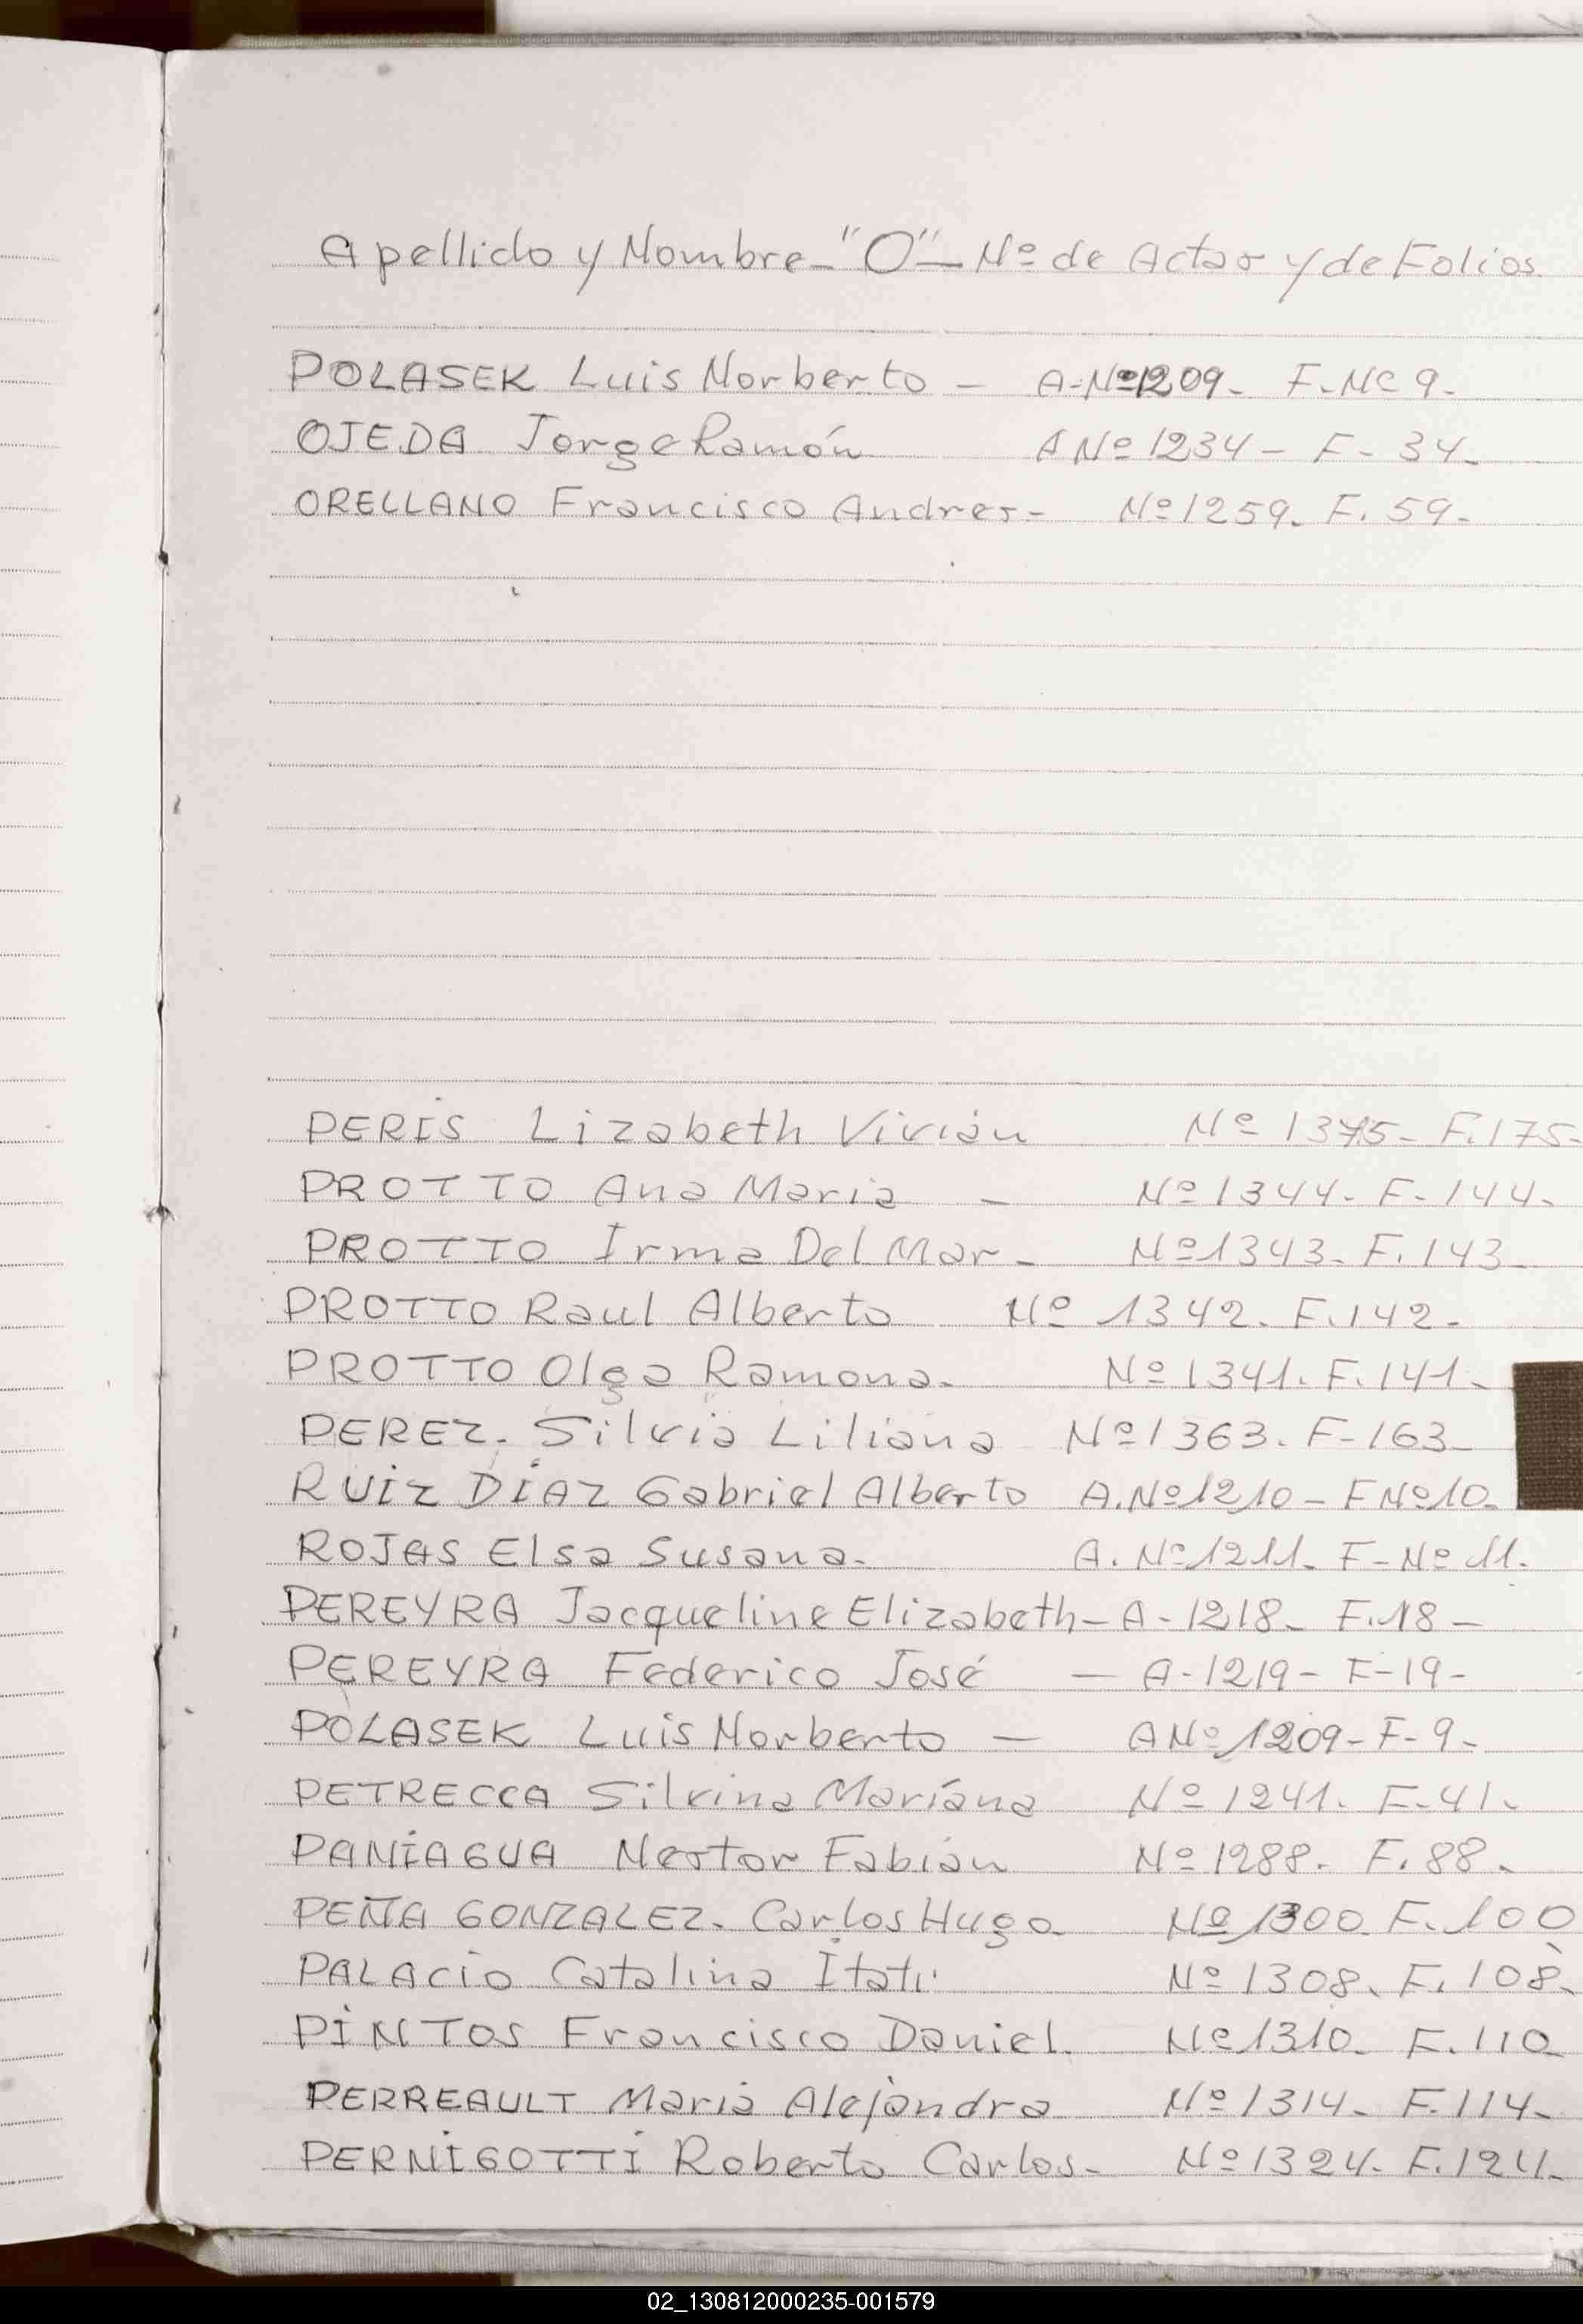 Apellido y Nombre - "O" - Nº de Actas y de Folios
POLASEK Luis Norberto - A-Nº1209- F-Nº 9-
OJEDA Jorge Ramón A Nº 1234 - F- 34-
ORELLANO Francisco Andres- Nº 1259. F. 59-
PERIS Lizabeth Vivián Nº 1375- F.175-
PROTTO Ana Maria - Nº 1344- F- 144-
PROTTO Irma Del Mar - Nº 1343- F. 143-
PROTTO Raul Alberto Nº 1342. F.142-
PROTTO Olga Ramona- Nº 1341. F.141-
PEREZ- Silvia Liliana Nº 1363. F-163-
RUIZ DÍAZ Gabriel Alberto A.Nº1210 - F Nº10-
ROJAS Elsa Susana- A. Nº1211- F-Nº 11-
PEREYRA Jacqueline Elizabeth - A - 1218- F.18 -
PEREYRA Federico José - A-1219- F-19-
POLASEK Luis Norberto - A Nº 1209- F- 9-
PETRECCA Silvina Mariána Nº 1241. F-41-
PANIAGUA Nestor Fabián Nº 1288. F. 88-
PEÑA GONZALEZ- Carlos Hugo Nº 1300 F. 100
PALACIO Catalina Itatí Nº 1308. F. 108-
PINTOS Francisco Daniel. Nº 1310- F. 110-
PERREAULT Maria Alejandra Nº 1314- F.114-
PERNIGOTTI Roberto Carlos- Nº 1324- F.124-
02_130812000235-001579